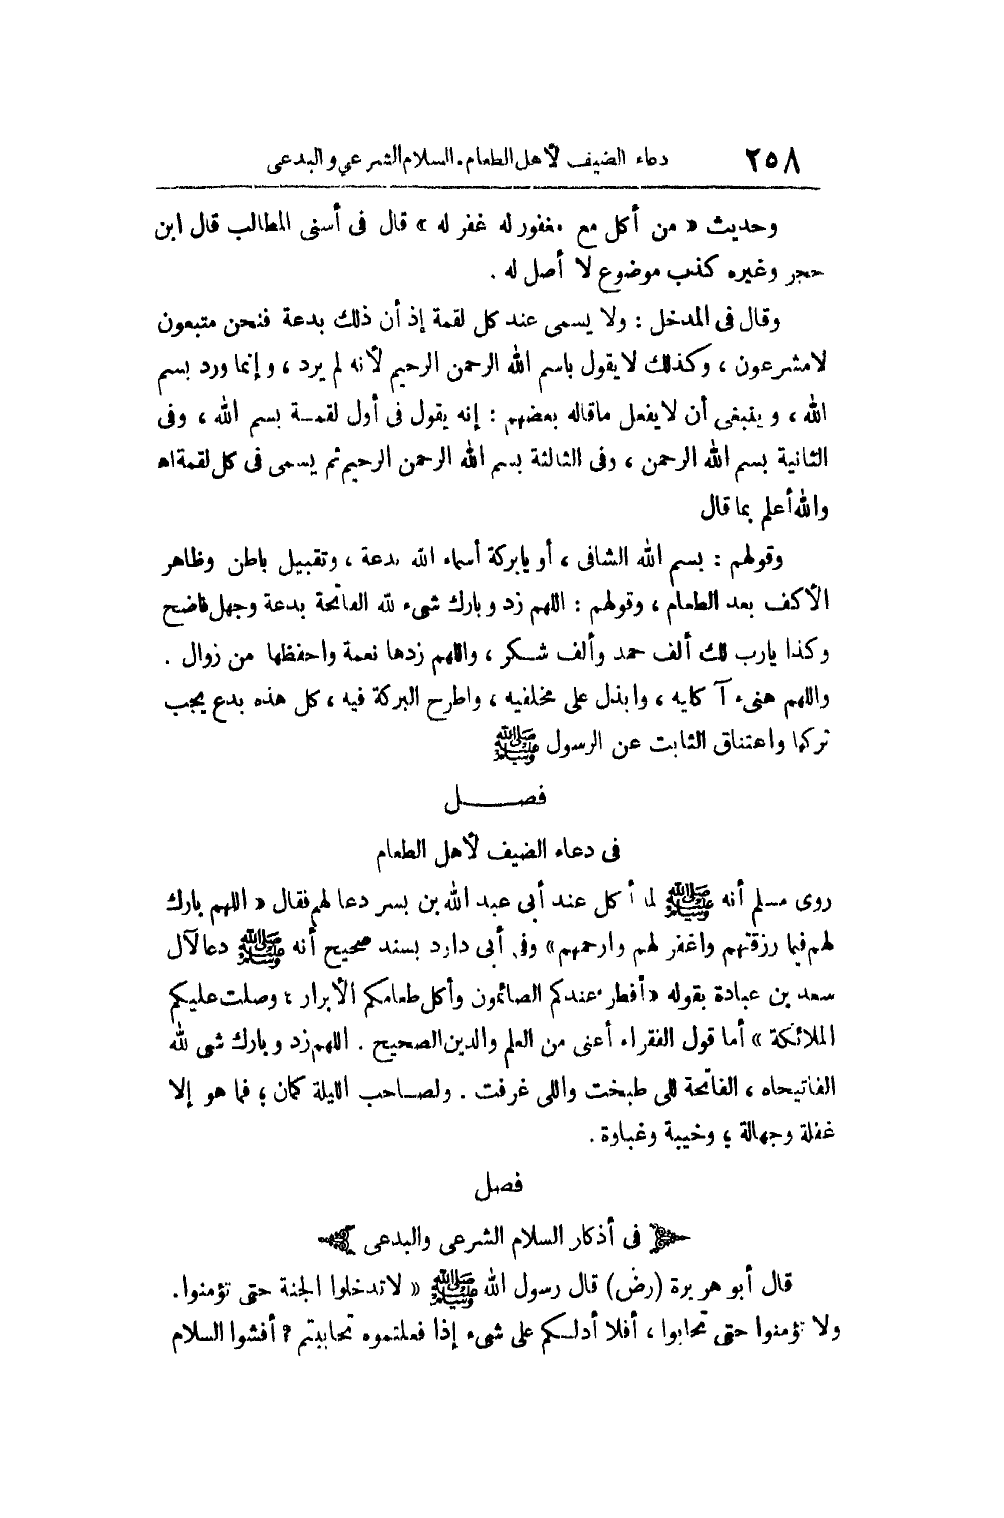 ٢٥٨ دعاء الضيف لأهل الطعام. السلام الشرعي والبدعى
وحديث « من أكل مع مغفور له غفر له » قال فى أسنى المطالب قال ابن
حجر وغيره كذب موضوع لا أصل له .
وقال فى المدخل : ولا يسمى عند كل لقمة إذ أن ذلك بدعة فنحن متبعون
لا مشرعون ، وكذلك لا يقول باسم الله الرحمن الرحيم لأنه لم يرد ، وإنما ورد بسم
الله ، وينبغى أن لا يفعل ماقاله بعضهم : إنه يقول فى أول لقمة بسم الله ، وفى
الثانية بسم الله الرحمن ، وفى الثالثة بسم الله الرحمن الرحيم ثم يسمى فى كل لقمة اه
والله أعلم بما قال
وقولهم : بسم الله الشافى ، أو يابركة أسماء الله بدعة ، وتقبيل باطن وظاهر
الأكف بعد الطعام ، وقولهم : اللهم زد وبارك شىء لله الفاتحة بدعة وجهل فاضح
وكذا يارب لك ألف حمد وألف شكر ، واللهم زدها نعمة واحفظها من زوال .
واللهم هنىء آكايه ، وابذل على مخلفيه ، واطرح البركة فيه ، كل هذه بدع يجب
تركها واعتناق الثابت عن الرسول ﷺ
فصل
فى دعاء الضيف لأهل الطعام
روى مسلم أنه ﷺ لما أكل عند أبى عبد الله بن بسر دعا لهم فقال « اللهم بارك
لهم فيما رزقتهم واغفر لهم وارحمهم » وفى أبى داود بسند صحيح أنه ﷺ دعا لآل
سعد بن عبادة بقوله « أفطر عندكم الصائمون وأكل طعامكم الأبرار ، وصلت عليكم
الملائكة » أما قول الفقراء أعنى من العلم والدين الصحيح . اللهم زد وبارك شى لله
الفاتيحاه ، الفاتحة للى طبخت واللى غرفت . ولصاحب الليلة كمان ؛ فما هو إلا
غفلة وجهالة ؛ وخيبة وغباوة .
فصل
فى أذكار السلام الشرعى والبدعى
قال أبو هريرة (رض) قال رسول الله ﷺ « لاتدخلوا الجنة حتى تؤمنوا.
ولا تؤمنوا حتى تحابوا ، أفلا أدلكم على شىء إذا فعلتموه تحاببتم ؟ أفشوا السلام